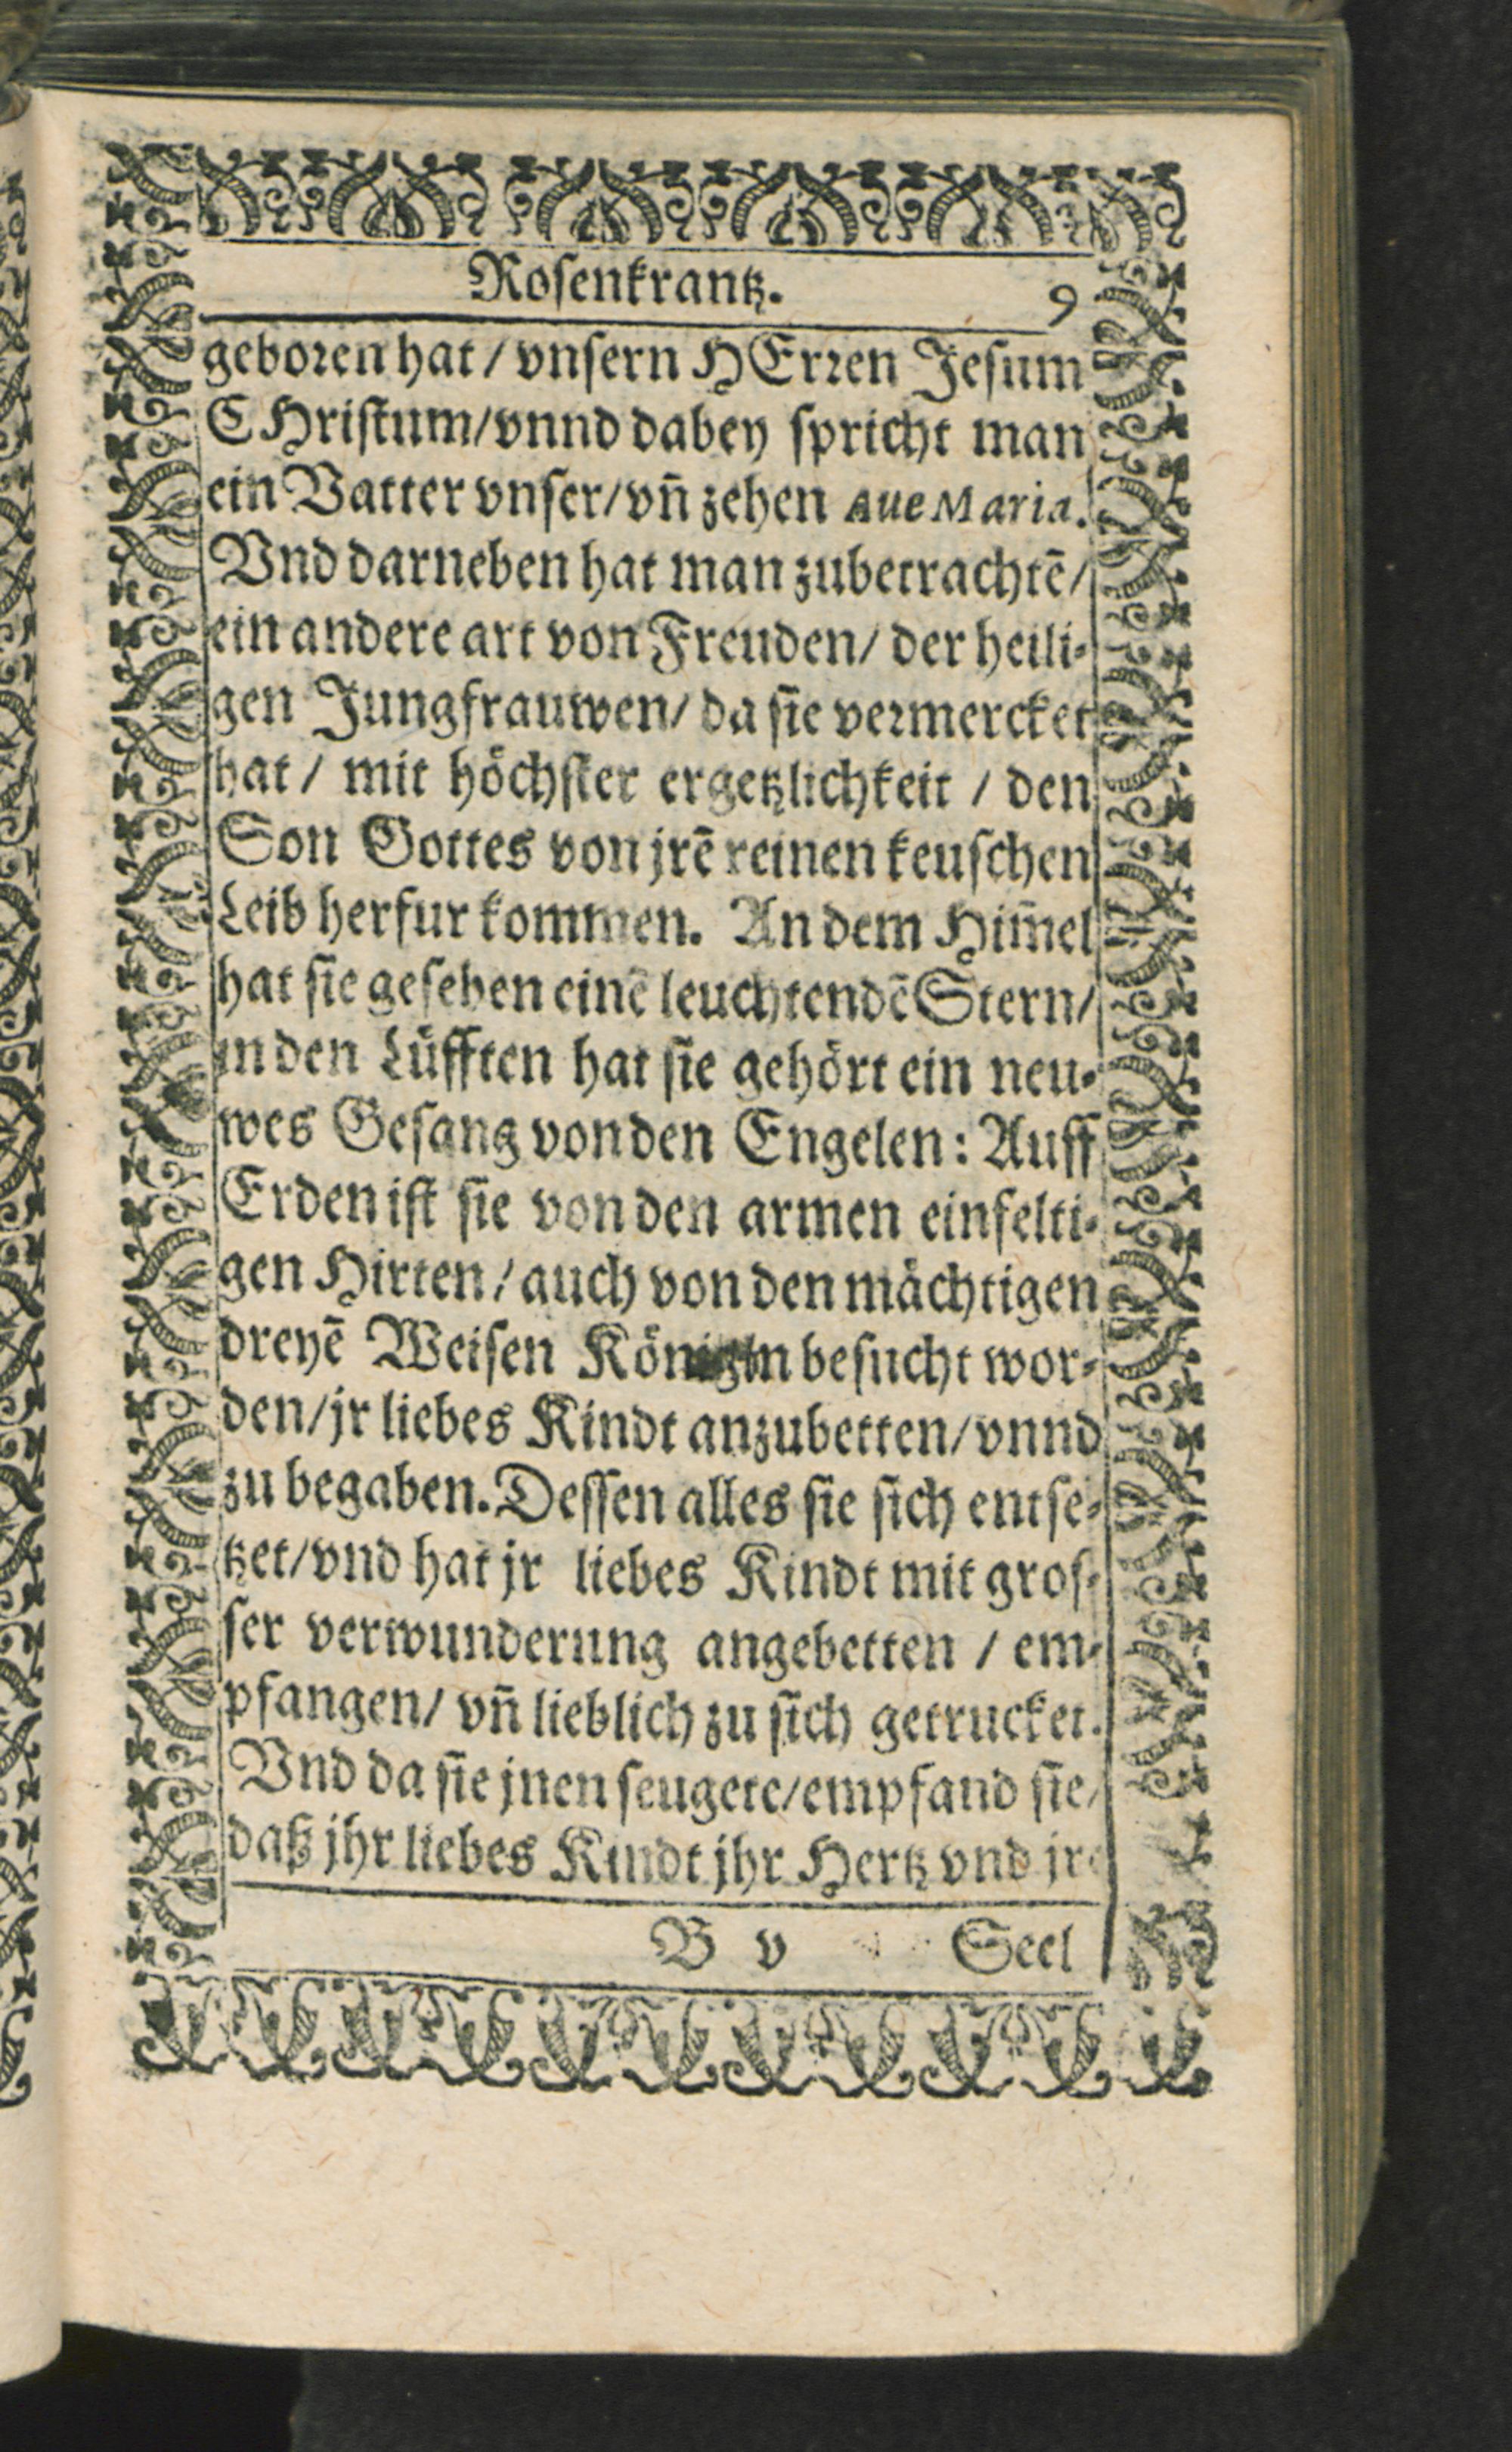 Rosenkrantz. 9
geboren hat / vnsern HErren Jesum
CHristum/vnnd dabey spricht man
ein Vatter vnser/vñ zehen Aue Maria.
Vnd darneben hat man zubetrachtē/
ein andere art von Freuden/ der heili-
gen Jungfrauwen/ da sie vermercket
hat / mit höchster ergetzlichkeit / den
Son Gottes von jrē reinen keuschen
Leib herfur kommen. An dem Him̃el
hat sie gesehen einē leuchtendē Stern/
in den Lüfften hat sie gehört ein neu-
wes Gesang von den Engelen: Auff
Erden ist sie von den armen einfelti-
gen Hirten / auch von den mächtigen
dreyē Weisen besucht wor-
den/jr liebes Kindt anzubetten/vnnd
zu begaben. Dessen alles sie sich entse-
tzet/vnd hat jr liebes Kindt mit gros-
ser verwunderung angebetten / em-
pfangen/ vñ lieblich zu sich getrucket.
Vnd da sie jnen seugete/empfand sie/
daß jhr liebes Kindt jhr Hertz vnd jre
B v Seel